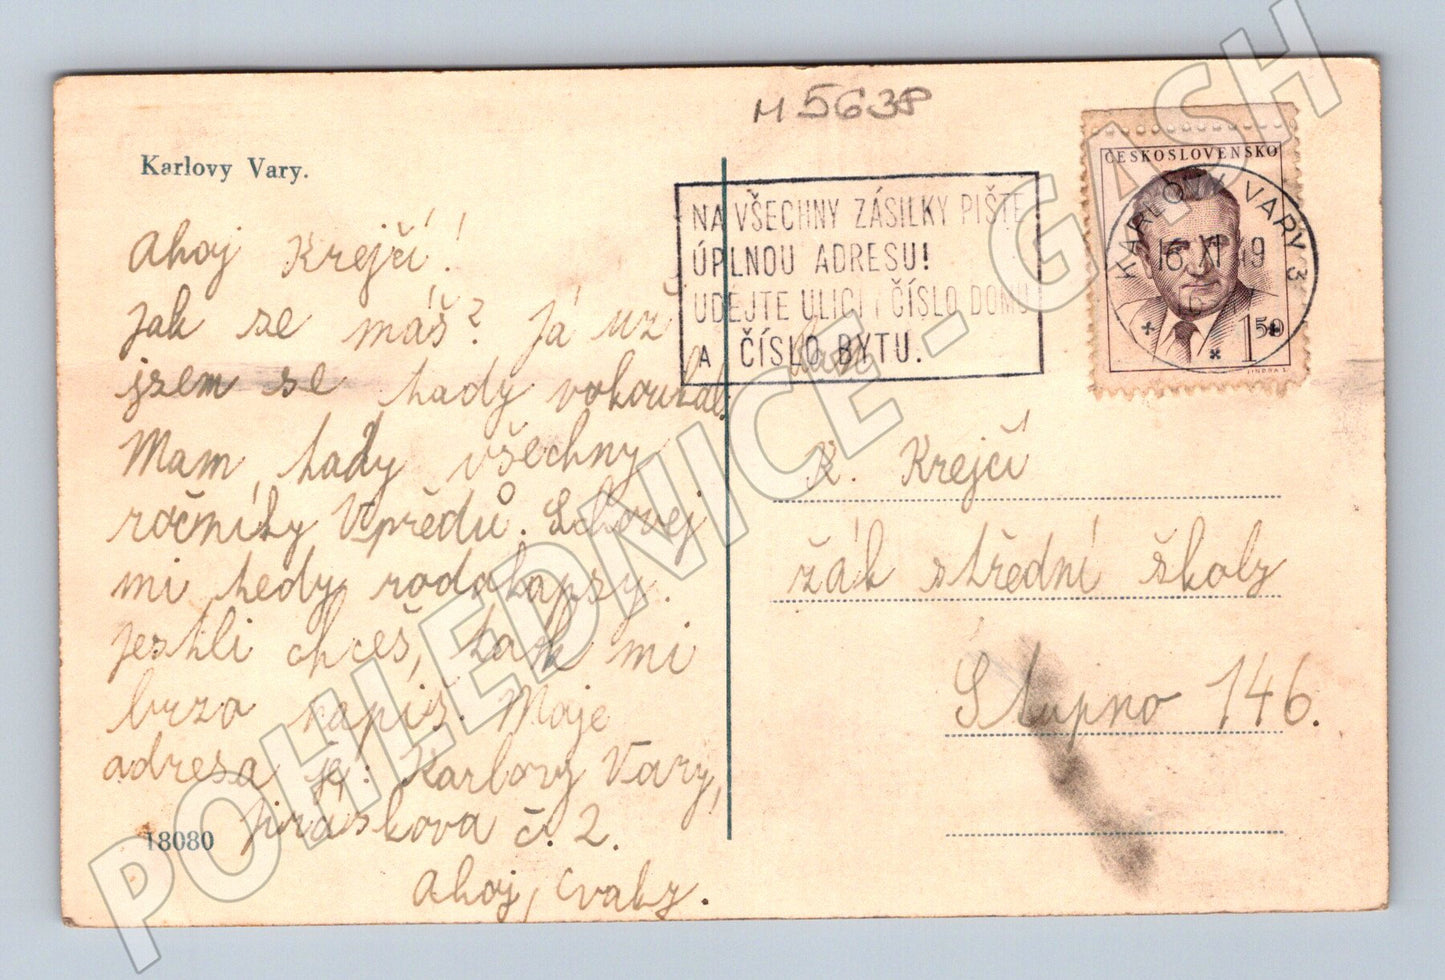 M 5638
Karlovy Vary.
NA VŠECHNY ZÁSILKY PIŠTE
ÚPLNOU ADRESU!
UDEJTE ULICI, ČÍSLO DOMU
A ČÍSLO BYTU.
ČESKOSLOVENSKO
KARLOVY VARY 3
16. XI 49
1.50
Ahoj Krejčí!
Jak se máš? Já už
jsem se tady vokoukal.
Mam tady všechny
ročníky Vpředů. Schovej
mi tedy rodokapsy.
Jestli chceš, tak mi
brzo napiš. Moje
adresa je: Karlovy Vary,
Jiráskova č. 2.
Ahoj,
18080
R. Krejčí
žák střední školy
Stupno 146.
POHLEDNICE - GASH